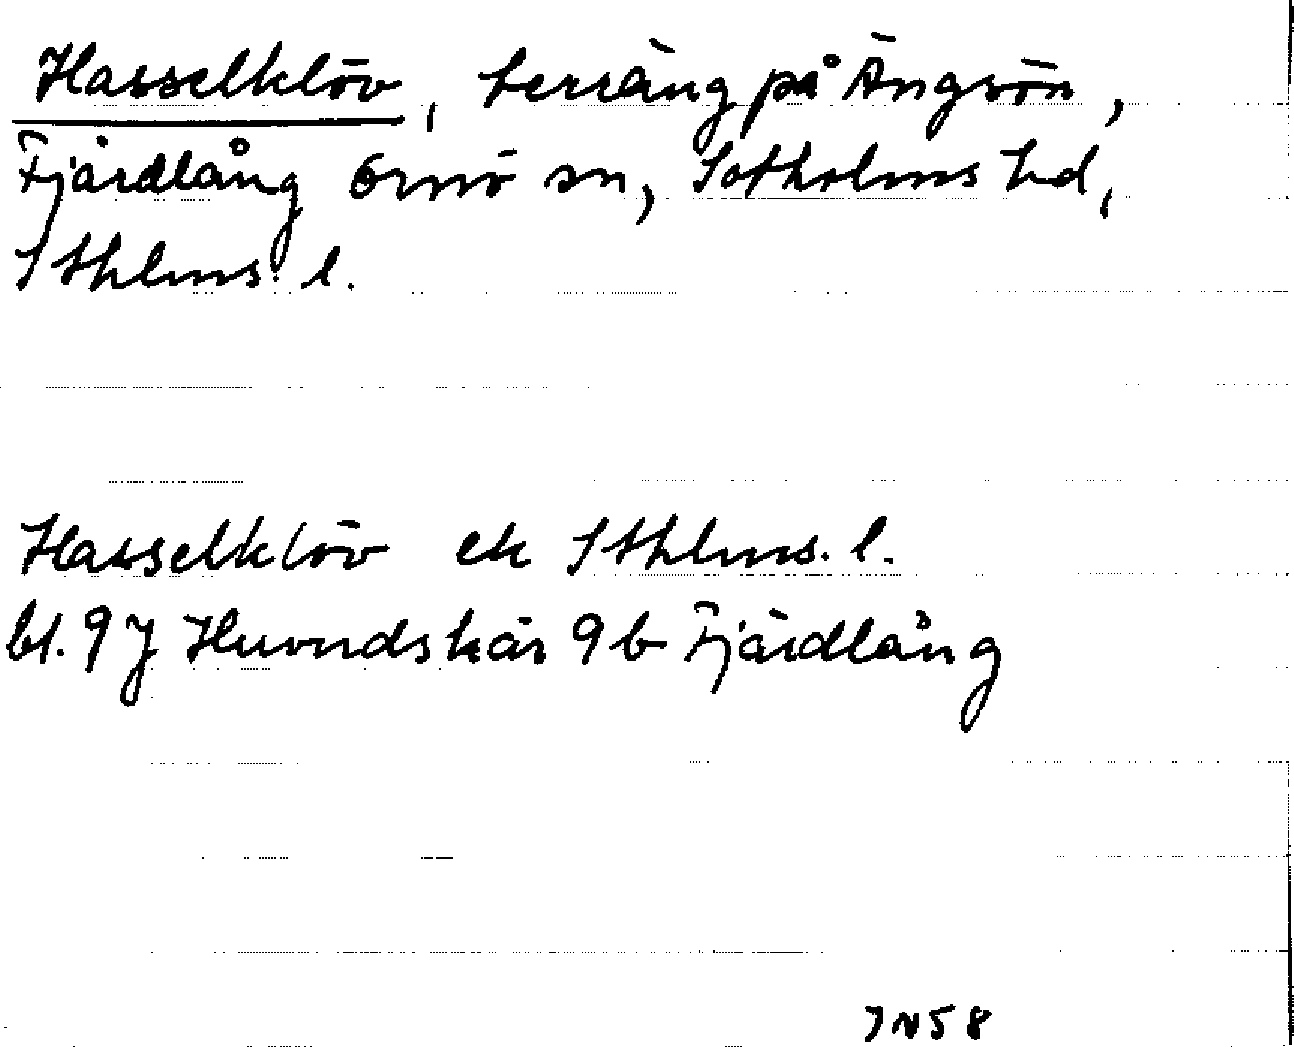 Hasselklöv, terräng på Ängsön,
Fjärdlång Ornö sn, Sotholms hd,
Sthlms l.
Hasselklöv ek Sthlms. l.
bl. 9J Huvudskär 9b Fjärdlång
JN58